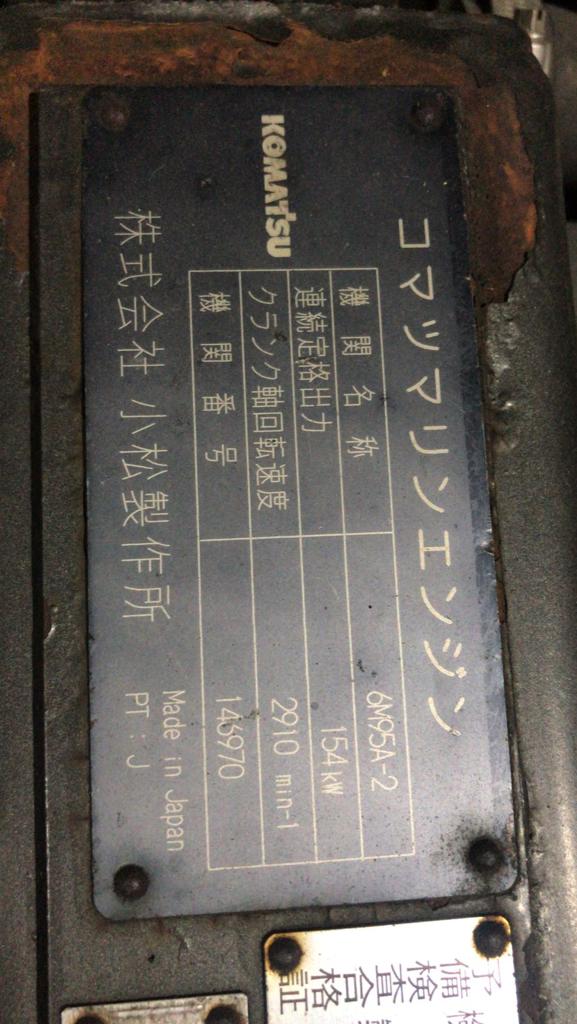 コマツマリンエンジン
KOMATSU
機関名称 6M95A-2
連続定格出力 154kW
クランク軸回転速度 2910 min-1
機関番号 146970
Made in Japan
株式会社 小松製作所 PT:J
予備検査合格証